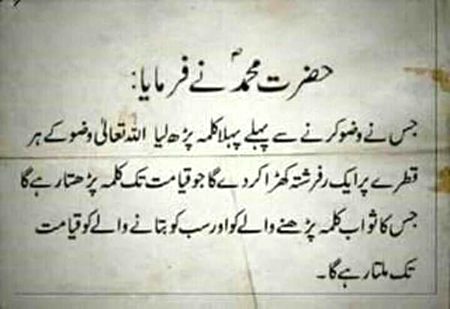 حضرت محمدؐ نے فرمایا:
جس نے وضو کرنے سے پہلے پہلا کلمہ پڑھ لیا اللہ تعالیٰ وضو کے ہر
قطرے پر ایک فرشتہ کھڑا کر دے گا جو قیامت تک کلمہ پڑھتا رہے گا
جس کا ثواب کلمہ پڑھنے والے کو اور سب کو بتانے والے کو قیامت
تک ملتا رہے گا۔